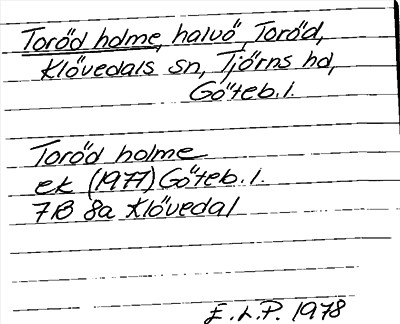 Toröd holme, halvö, Toröd,
Klövedals sn, Tjörns hd,
Göteb. l.
Toröd holme
ek (1977) Göteb. l.
7B 8a Klövedal
E.L.P. 1978